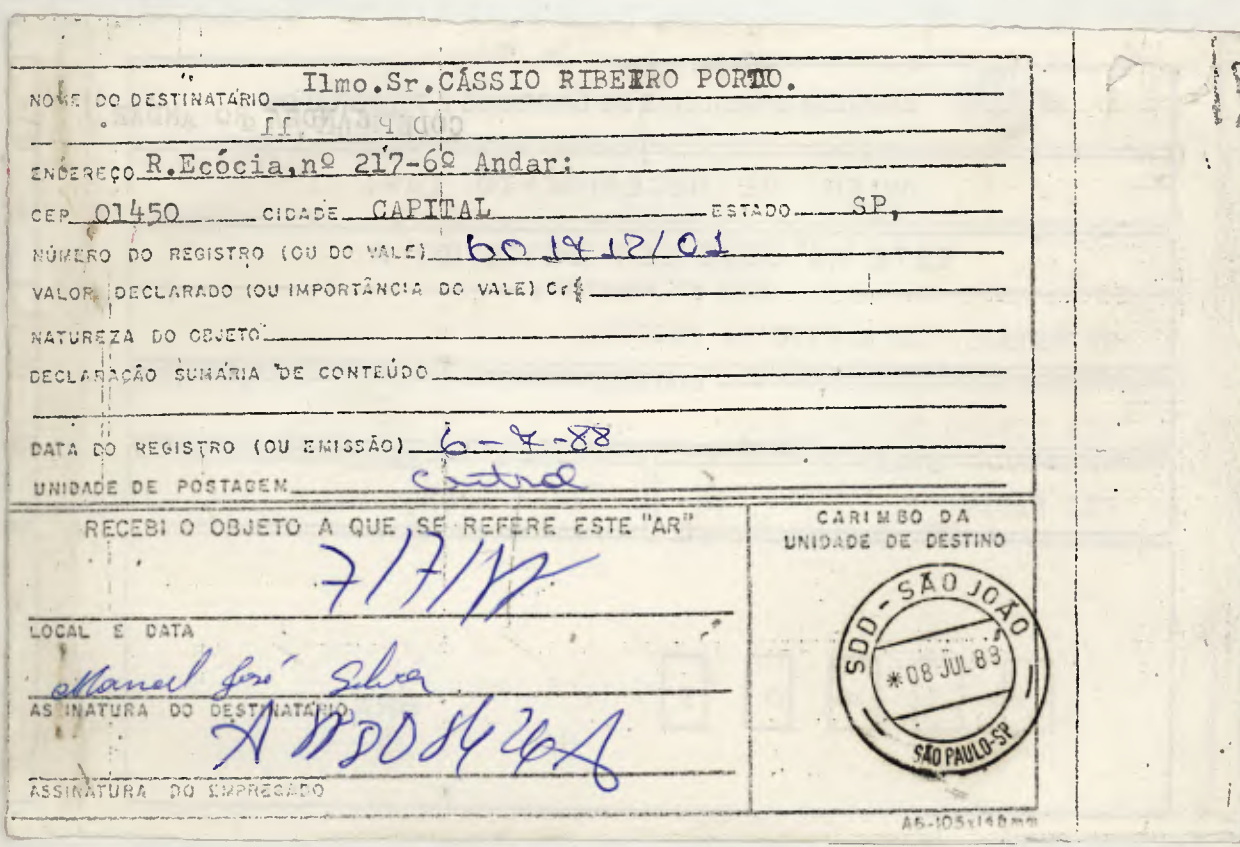 NOME DO DESTINATÁRIO Ilmo.Sr.CÁSSIO RIBEIRO PORTO.
ENDEREÇO R.Ecócia,nº 217-6º Andar;
CEP 01450 CIDADE CAPITAL ESTADO SP,
NÚMERO DO REGISTRO (OU DO VALE) 601712/01
VALOR DECLARADO (OU IMPORTÂNCIA DO VALE) Cr$
NATUREZA DO OBJETO
DECLARAÇÃO SUMÁRIA DE CONTEÚDO
DATA DO REGISTRO (OU EMISSÃO) 6-7-88
UNIDADE DE POSTAGEM Central
RECEBI O OBJETO A QUE SE REFERE ESTE "AR"
7/7/88
LOCAL E DATA
Manoel José Silva
ASSINATURA DO DESTINATÁRIO
ASSINATURA DO EMPREGADO
CARIMBO DA
UNIDADE DE DESTINO
SDD - SÃO JOÃO
*08 JUL 88
SÃO PAULO-SP
A6-105x148mm